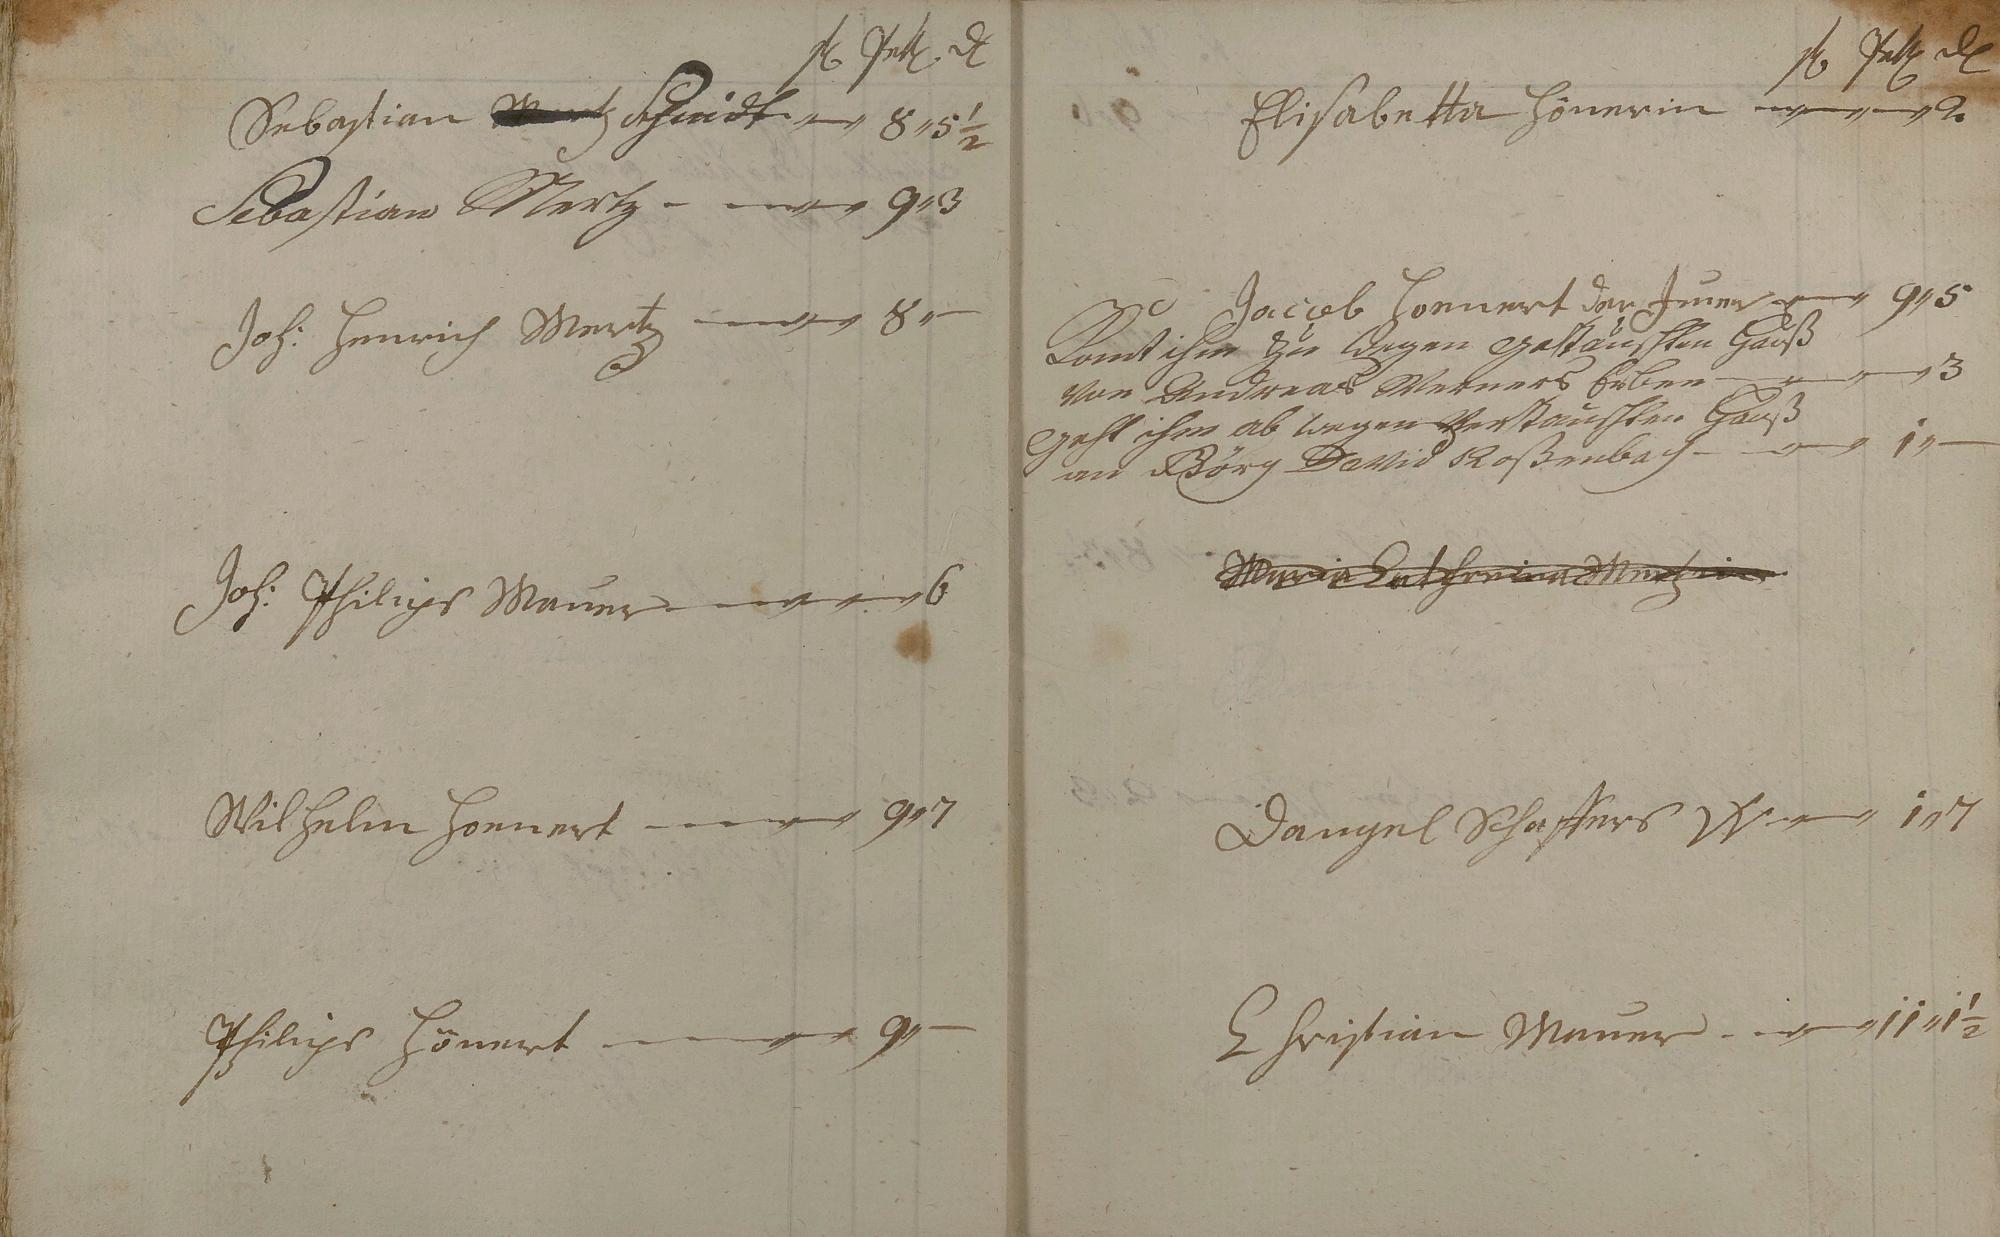 fl Pett. d
Sebastian Mertz Schmidt 8 „ 5½
Sebastian Mertz - 9 „ 3
Joh: Henrich Mertz 8 „ —
Joh: Philips Maurer 6
Wilhelm Hoenert 9 „ 7
Philips Hönert 9 „ —
fl Pett d
Elisabetta Hönerin 2.
Jacob Hoenert der Juner 9 „ 5
Komt ihm zu wegen getauschten Hauß
von Andreas Werners Erben 3
geht ihm ab wegen vertauschten Hauß
an Görg David Roßenbach 1 „ —
Maria Catharina Mertzin
Dangel Schaffers W. 1 „ 7
Christian Maurer 11 „ 1½